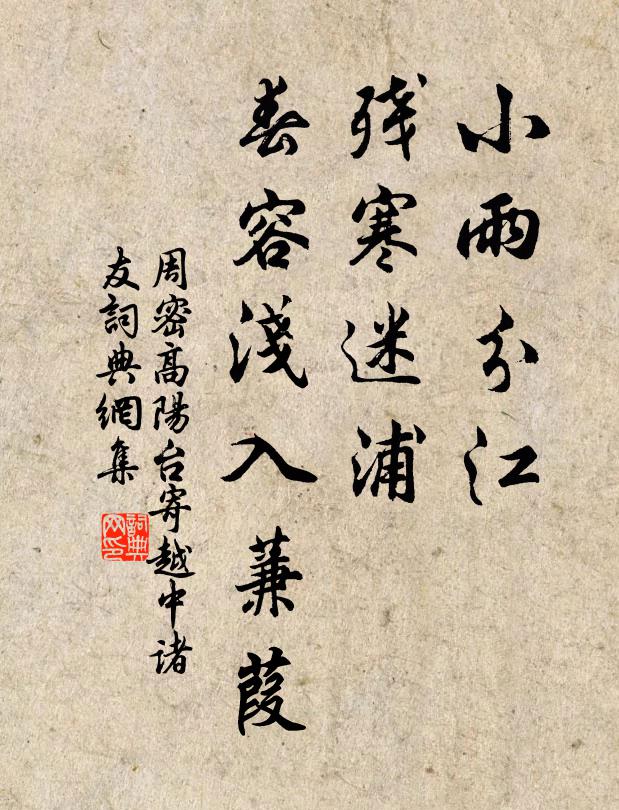 小雨分江
残寒迷浦
春容淺入蒹葭
周密高陽台寄越中诸
友詞典網集
詞典网印